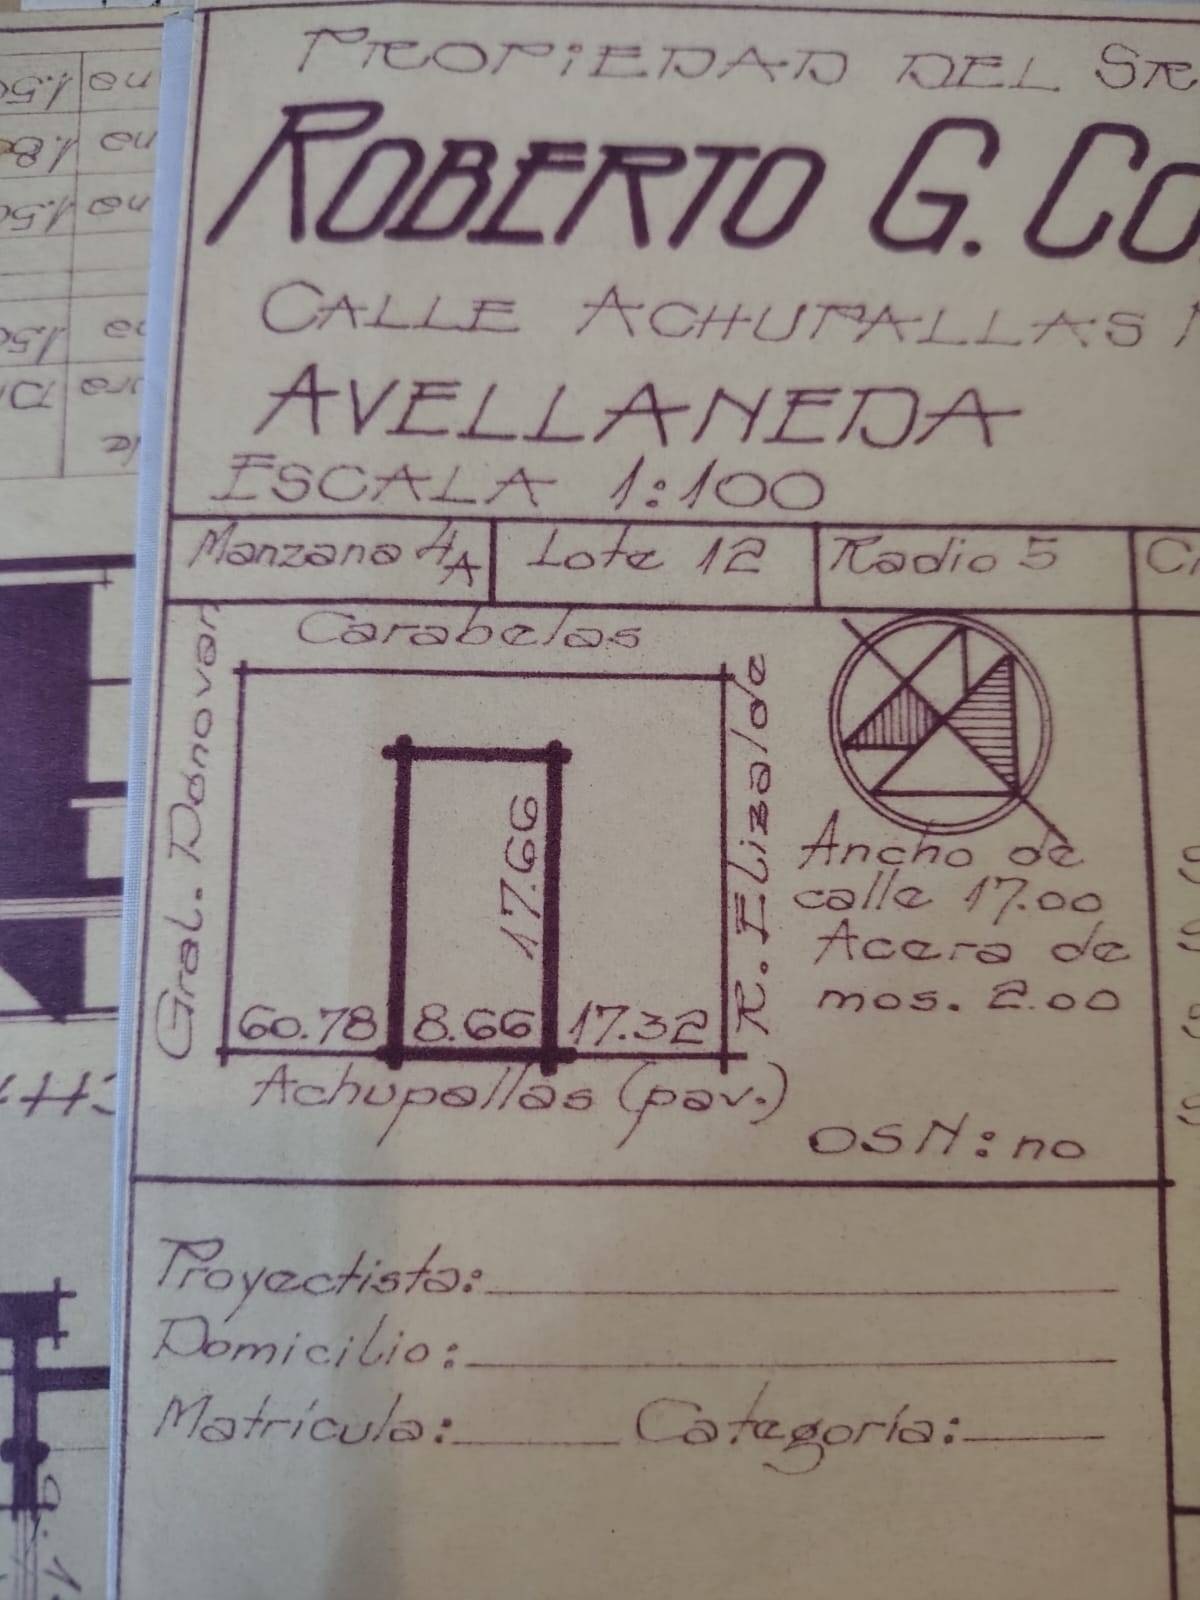 PROPIEDAD DEL SR
ROBERTO G. CO
CALLE ACHUPALLAS
AVELLANEDA
ESCALA 1:100
Manzana 4A
Lote 12
Radio 5
Carabelas
Gral. Dónovan
R. Elizalde
17.66
60.78
8.66
17.32
Achupallas (pav.)
Ancho de
calle 17.00
Acera de
mos. 2.00
OSN: no
Proyectista:
Domicilio:
Matrícula:
Categoría: